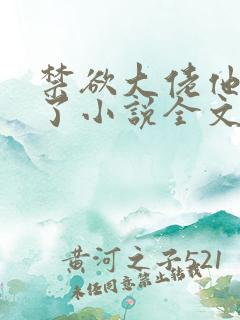 禁欲大佬他
了小说全文
黄河之子521
未经同意禁止转载